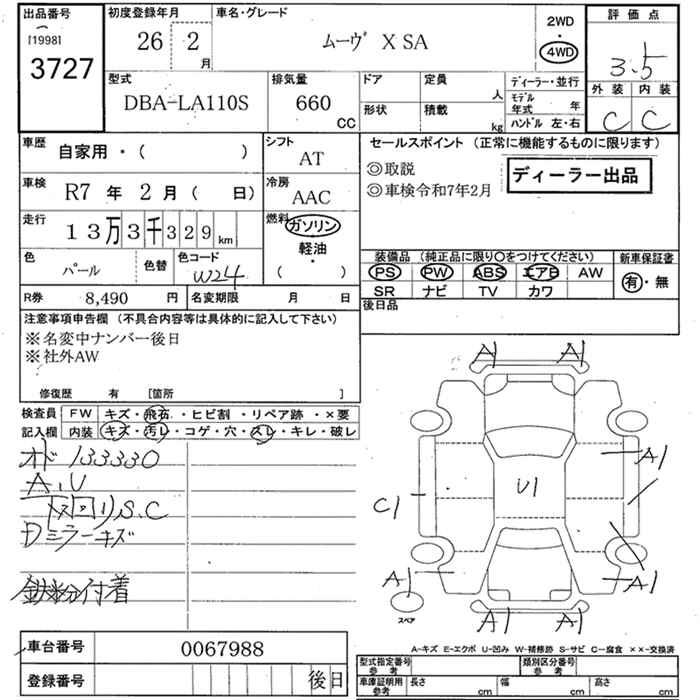 出品番号
[1998]
3727
初度登録年月
26 2 月
車名・グレード
ムーヴ X SA
2WD
・
4WD
評価点
3.5
外装 内装
C C
型式
DBA-LA110S
排気量
660 CC
ドア
形状
定員 人
積載 kg
ディーラー・並行
モデル年式 年
ハンドル 左・右
車歴
自家用・( )
シフト
AT
車検
R7年 2月 ( 日)
冷房
AAC
走行
13万3千329km
燃料
ガソリン
軽油・
( )
色
パール
色替
色コード
W24
R券 8,490 円
名変期限 月 日
セールスポイント (正常に機能するものに限ります)
◎取説
◎車検令和7年2月
ディーラー出品
装備品 (純正品に限り○をつけてください)
PS PW ABS エアB AW
SR ナビ TV カワ
新車保証書
有・無
後日品
注意事項申告欄 (不具合内容等は具体的に記入して下さい)
※名変中ナンバー後日
※社外AW
修復歴 有 [箇所 ]
検査員
記入欄
FW キズ・飛石・ヒビ割・リペア跡・×要
内装 キズ・汚レ・コゲ・穴・スレ・キレ・破レ
オド 133330
A.U
下回りS.C
Dミラーキズ
鉄粉付着
A1 A1
A1
U1
C1
A1
A1
A1 A1
スペア
A-キズ E-エクボ U-凹み W-補修跡 S-サビ C-腐食 ××-交換済
車台番号 0067988
登録番号 後日
型式指定番号 参考
類別区分番号 参考
車庫証明用 参考
長さ cm 幅 cm 高さ cm